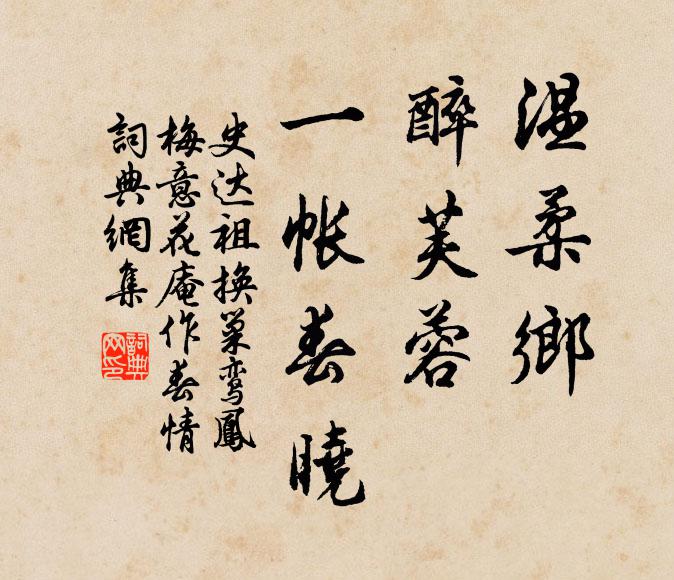 温柔鄉
醉芙蓉
一帐春曉
史达祖换巢鸾鳳
梅意花庵作春情
詞典網集
詞典网印